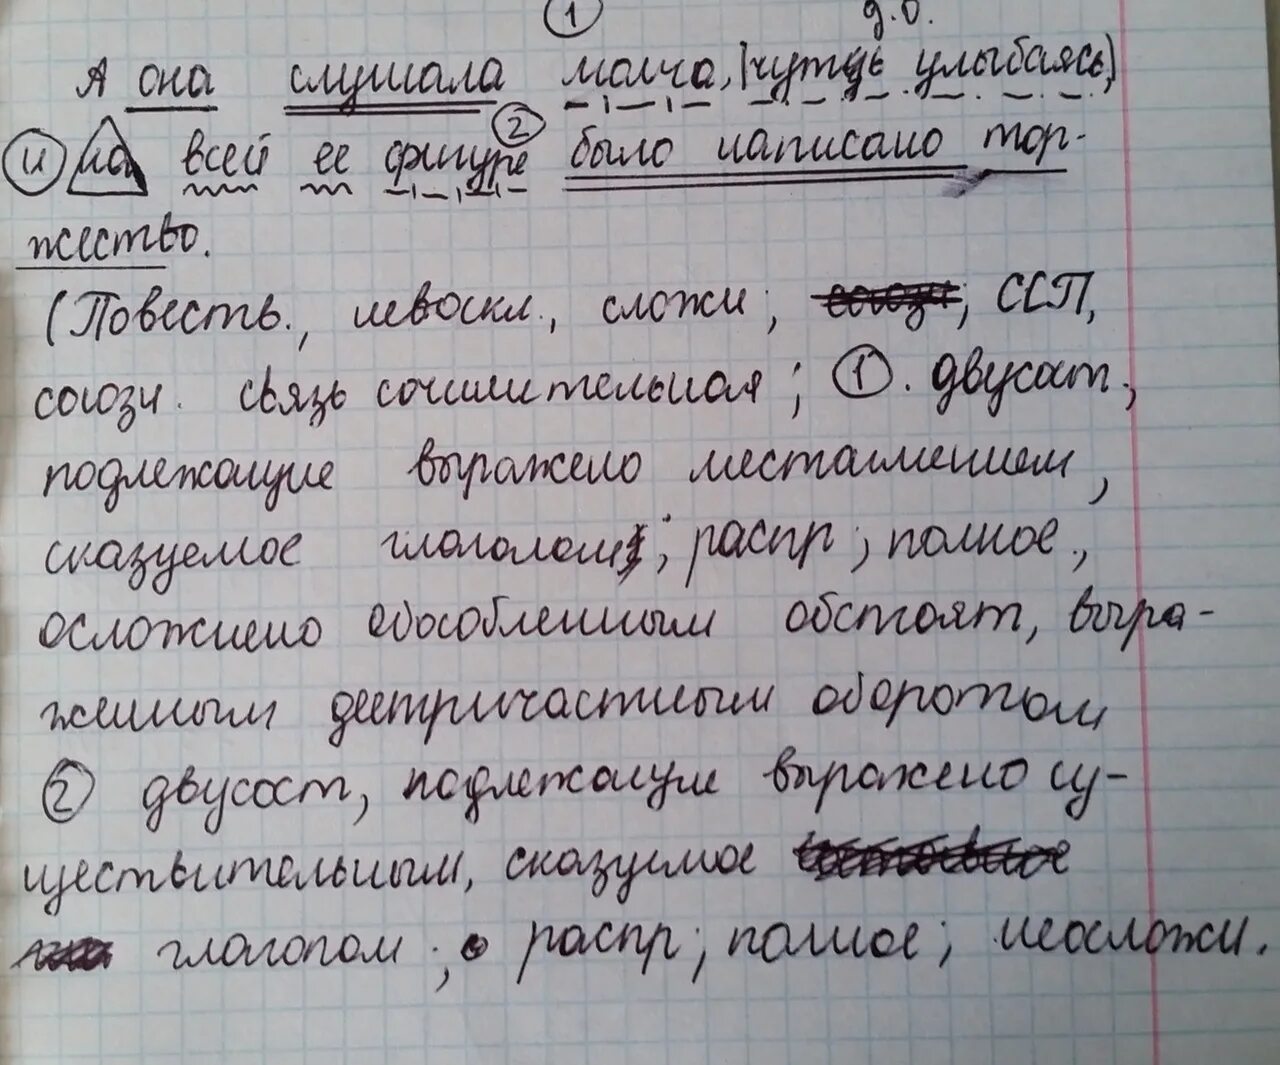 ① д.о.
А она слушала молча, |чуть улыбаясь,|
и на всей ее фигуре ② было написано тор-
жество.
(Повеств., невоскл., сложн; ССП,
союзн. связь сочинительная; ①. двусост.;
подлежащие выражено местаимением,
сказуемое глаголом; распр; полное.,
осложнено обособленным обстоят, выра-
женным деепричастным оборотом
② двусост, подлежащие выражено су-
ществительным, сказуемое
глаголом; распр; полное; неосложн.